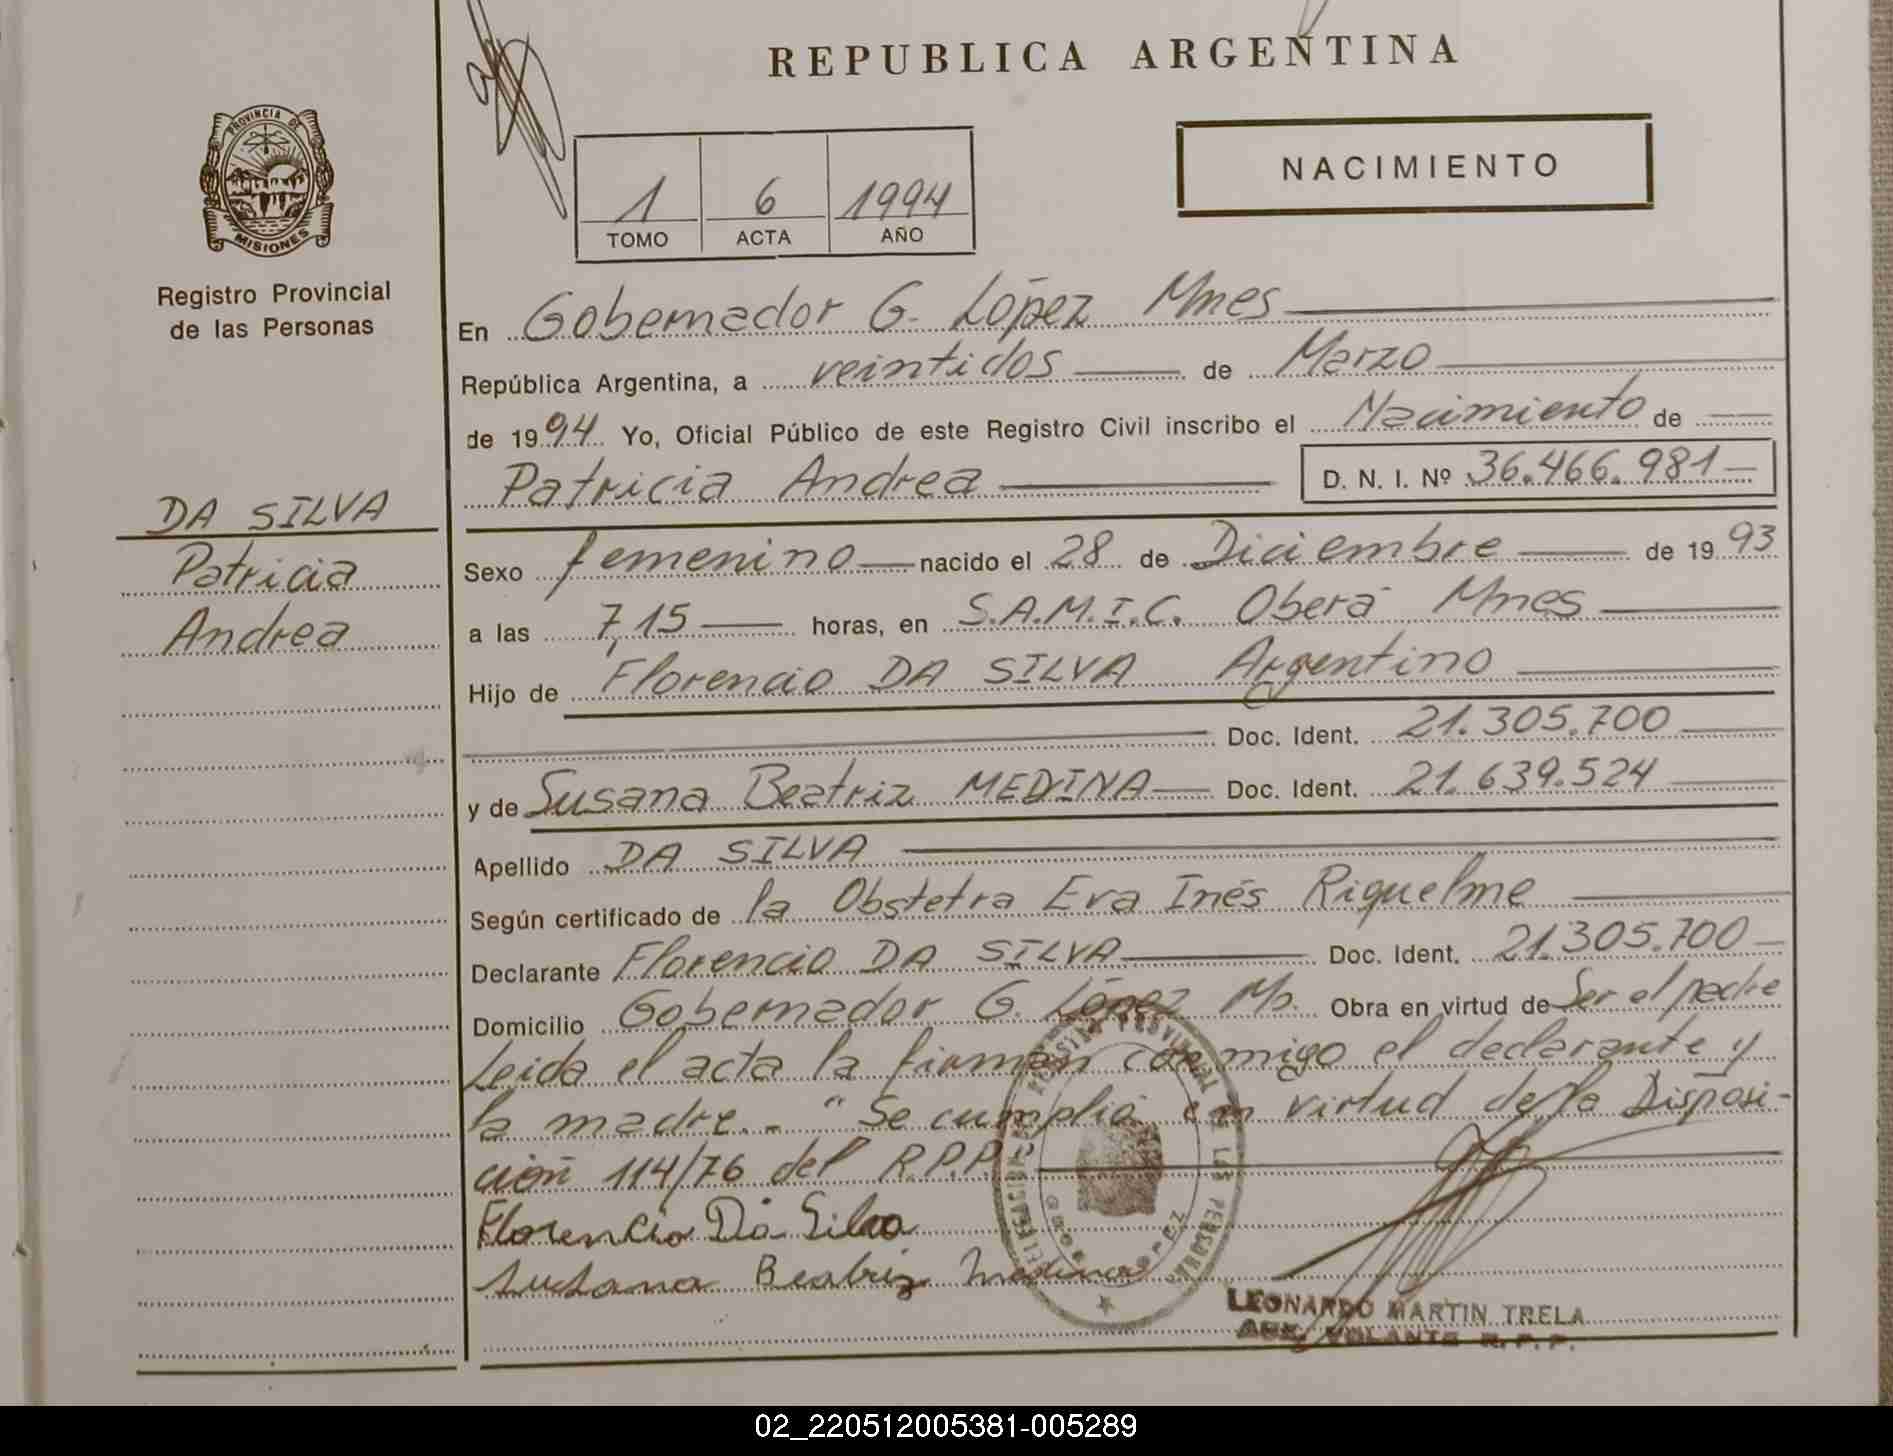 REPUBLICA ARGENTINA
PROVINCIA DE
MISIONES
Registro Provincial
de las Personas
1 6 1994
TOMO ACTA AÑO
NACIMIENTO
En Gobernador G. López Mnes
República Argentina, a veintidos de Marzo
de 1994 Yo, Oficial Público de este Registro Civil inscribo el Nacimiento de
Patricia Andrea D. N. I. Nº 36.466.981
DA SILVA
Patricia
Andrea
Sexo femenino nacido el 28 de Diciembre de 1993
a las 7,15 horas, en S.A.M.I.C. Oberá Mnes
Hijo de Florencio DA SILVA Argentino
Doc. Ident. 21.305.700
y de Susana Beatriz MEDINA Doc. Ident. 21.639.524
Apellido DA SILVA
Según certificado de la Obstetra Eva Inés Riquelme
Declarante Florencio DA SILVA Doc. Ident. 21.305.700
Domicilio Gobernador G. López Ms. Obra en virtud de Ser el padre
Leida el acta la firman conmigo el declarante y
la madre.- "Se cumplió en virtud de la Disposi-
ción 114/76 del R.P.P.
Florencio Da Silva
Susana Beatriz Medina
REGISTRO PROVINCIAL DE LAS PERSONAS
LEONARDO MARTIN TRELA
AUX. VOLANTE R.P.P.
02_220512005381-005289